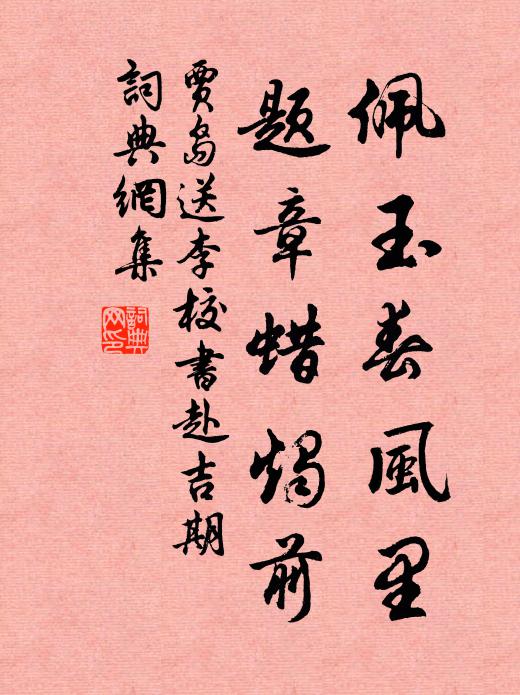 佩玉春風里
題章蜡燭前
賈島送李校書赴吉期
詞典網集
詞典网印